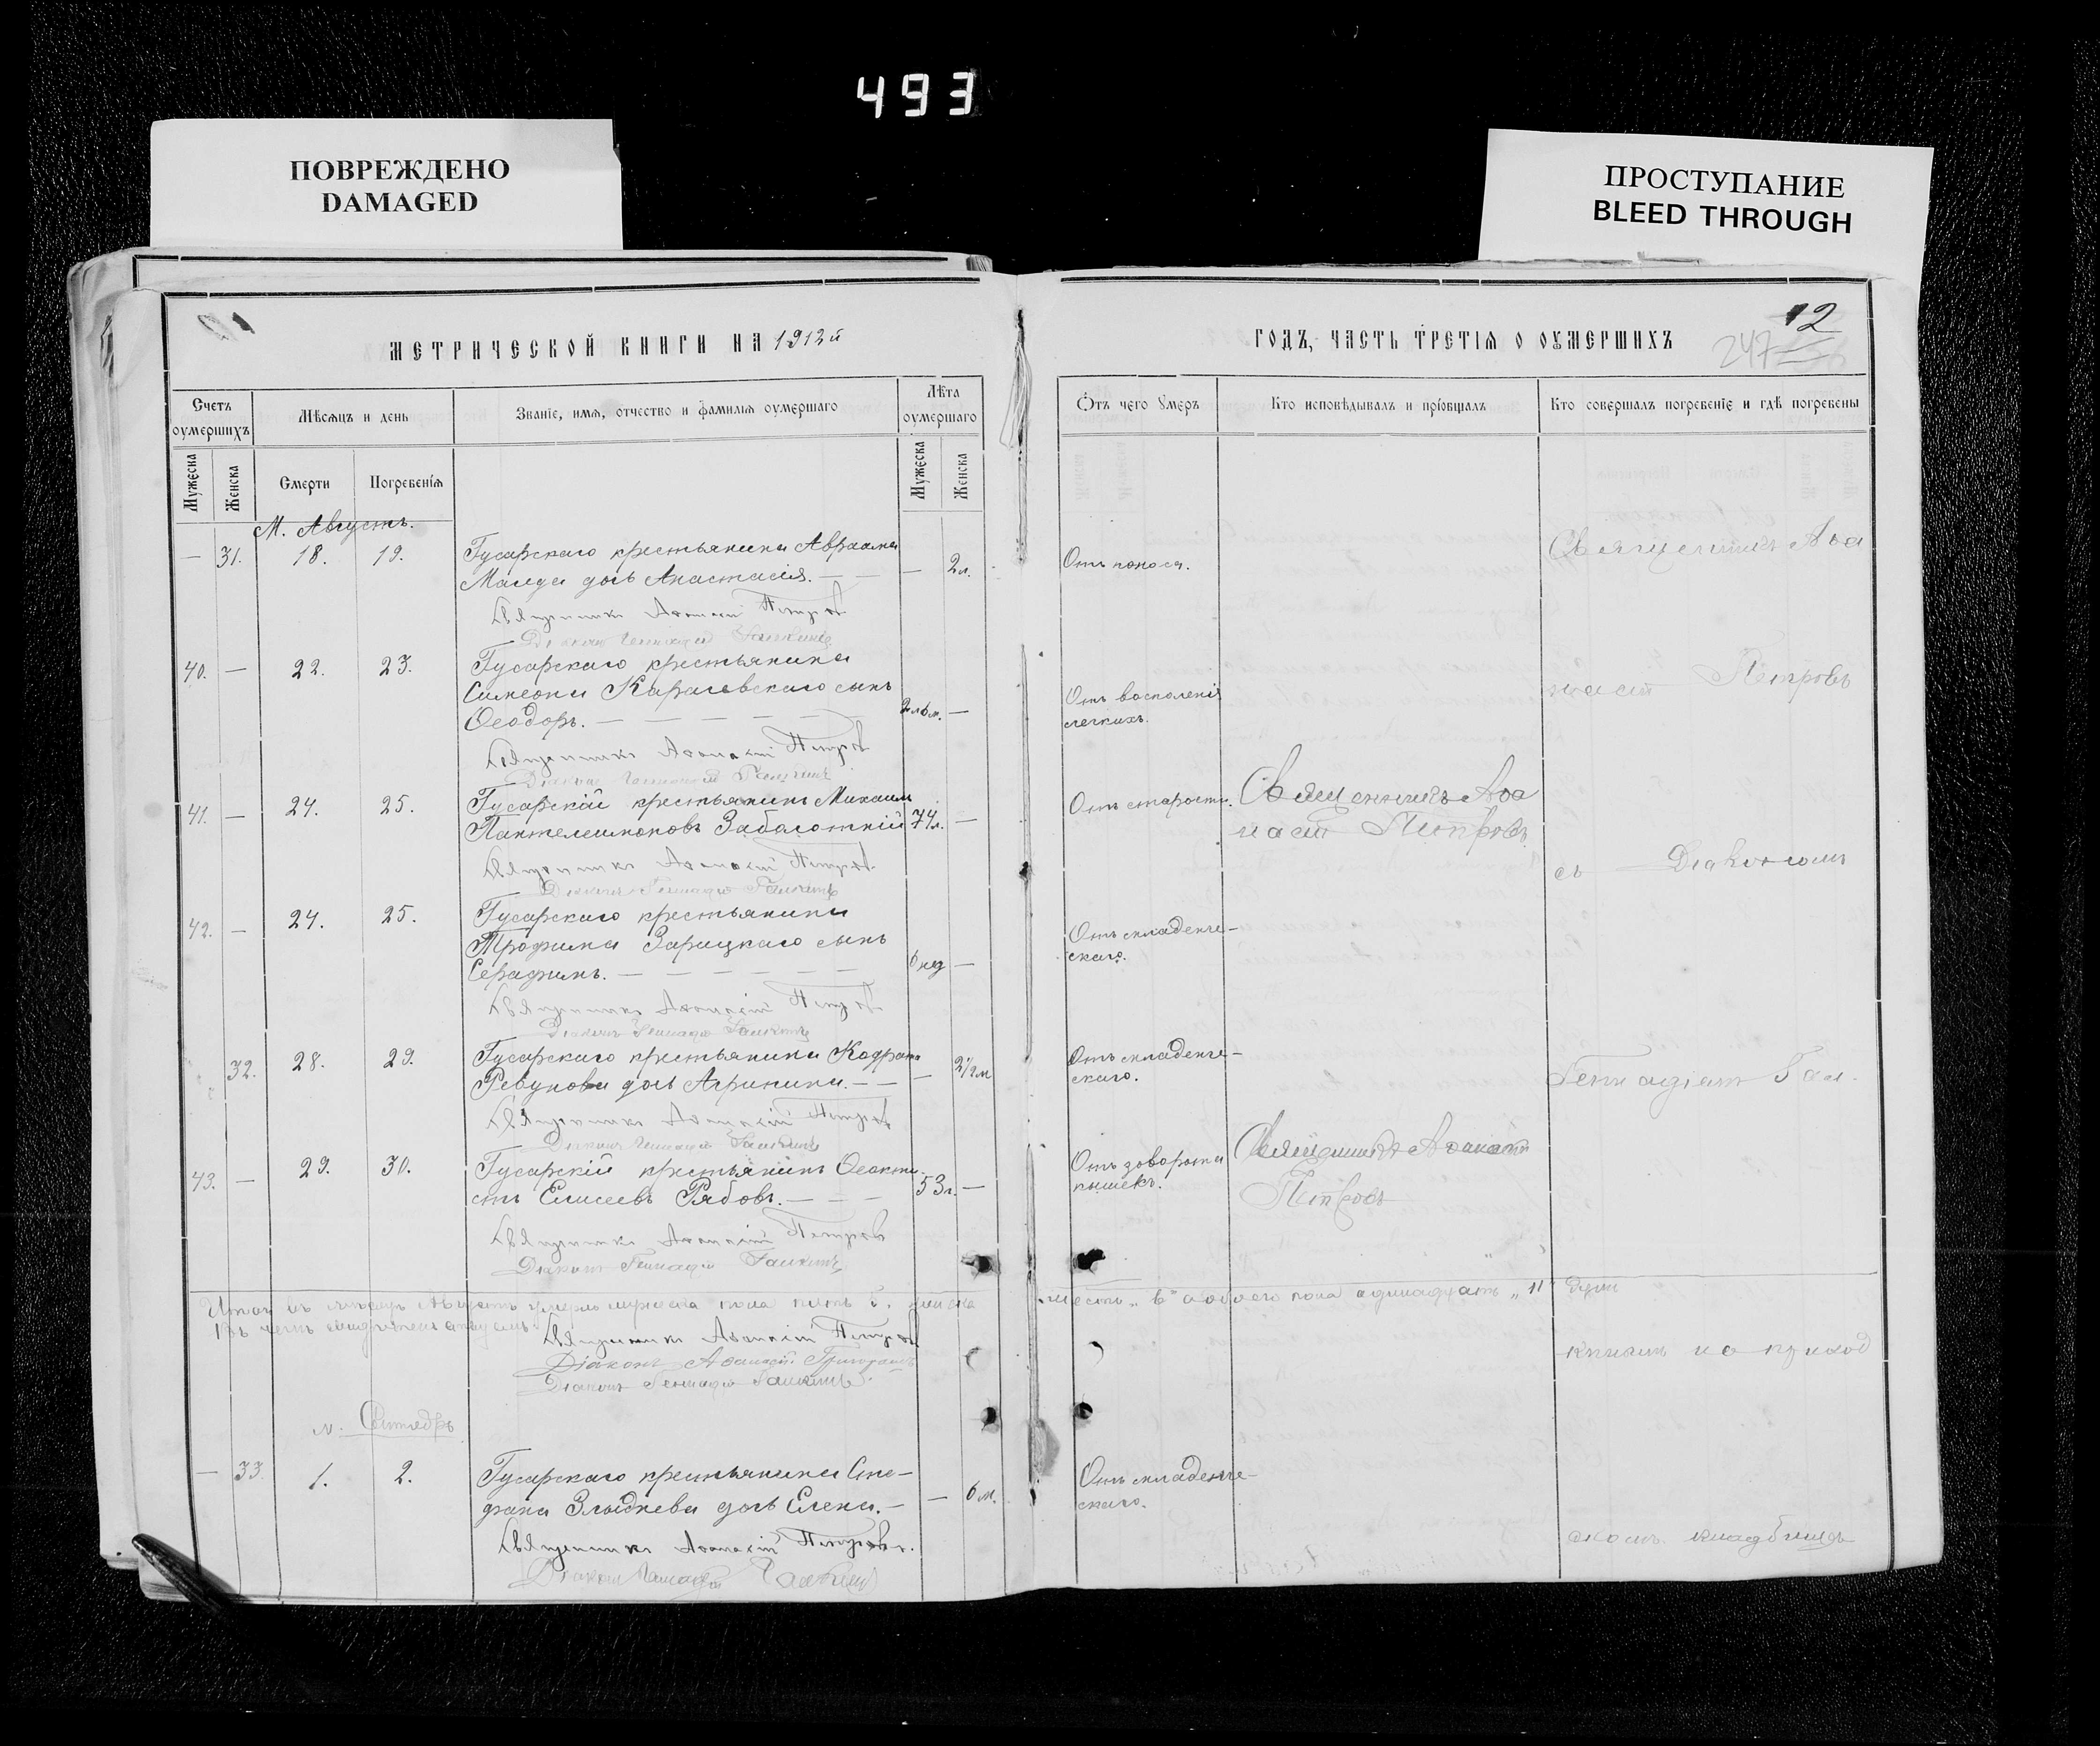 493
ПОВРЕЖДЕНО
DAMAGED
ПРОСТУПАНИЕ
BLEED THROUGH
МЕТРИЧЕСКОЙ КНИГИ НА 1912й
ГОДЪ, ЧАСТЬ ТРЕТІЯ О ОУМЕРШИХЪ
12
247
Счетъ оумершихъ
Мѣсяцъ и день
Званіе, имя, отчество и фамилія оумершаго
Лѣта оумершаго
Отъ чего умеръ
Кто исповѣдывалъ и пріобщалъ
Кто совершалъ погребеніе и гдѣ погребены
Мужеска
Женска
Смерти
Погребенія
Мужеска
Женска
М. Августъ.
— 31. 18. 19. Гусарскаго крестьянина Авраама
дочь Анастасія. — — — 2 л. Отъ поноса.
Священникъ Аѳанасій Петровъ
Діаконъ Геннадій Галкинъ
40. — 22. 23. Гусарскаго крестьянина
Симеона Карагевскаго сынъ
Ѳеодоръ. — — — — — —
Отъ воспаленія
легкихъ.
Священникъ Аѳанасій Петровъ
Діаконъ Геннадій Галкинъ
41. — 24. 25. Гусарскій крестьянинъ Михаилъ
Пантелеимоновъ Заболотній 74 л. — Отъ старости.
Священникъ Аѳа
насій Петровъ
Священникъ Аѳанасій Петровъ
Діаконъ Геннадій Галкинъ
42. — 24. 25. Гусарскаго крестьянина
Трофима Зарицкаго сынъ
Серафимъ. — — — — — — 6 нед —
Отъ младенче-
скаго.
Священникъ Аѳанасій Петровъ
Діаконъ Геннадій Галкинъ
32. 28. 29. Гусарскаго крестьянина Кодрата
Ревунова дочь Агрипина. — — — 2½ м
Отъ младенче-
скаго.
Священникъ Аѳанасій Петровъ
Діаконъ Геннадій Галкинъ
43. — 29. 30. Гусарскій крестьянинъ Ѳеокти-
стъ Елисеевъ Рябовъ. — — — 53 л. —
Отъ заворота
кишекъ.
Священникъ Аѳанасій
Петровъ
Священникъ Аѳанасій Петровъ
Діаконъ Геннадій Галкинъ
Итого въ мѣсяцѣ Августѣ умерло мужеска пола пять женска
шесть „ 6 “ обоего пола одинадцать „ 11 “ душ
Въ чемъ
Священникъ Аѳанасій Петровъ
Діаконъ Аѳанасій
Діаконъ Геннадій Галкинъ
м. Сентябрь
— 33. 1. 2. Гусарскаго крестьянина Сте-
фана дочь Елена. — — 6 м.
Отъ младенче-
скаго.
Священникъ Аѳанасій Петровъ.
Діаконъ Геннадій Галкинъ
Священникъ Аѳа
насій Петровъ
съ Діакономъ
Геннадіемъ Гал-
кинымъ на приход
скомъ кладбищѣ